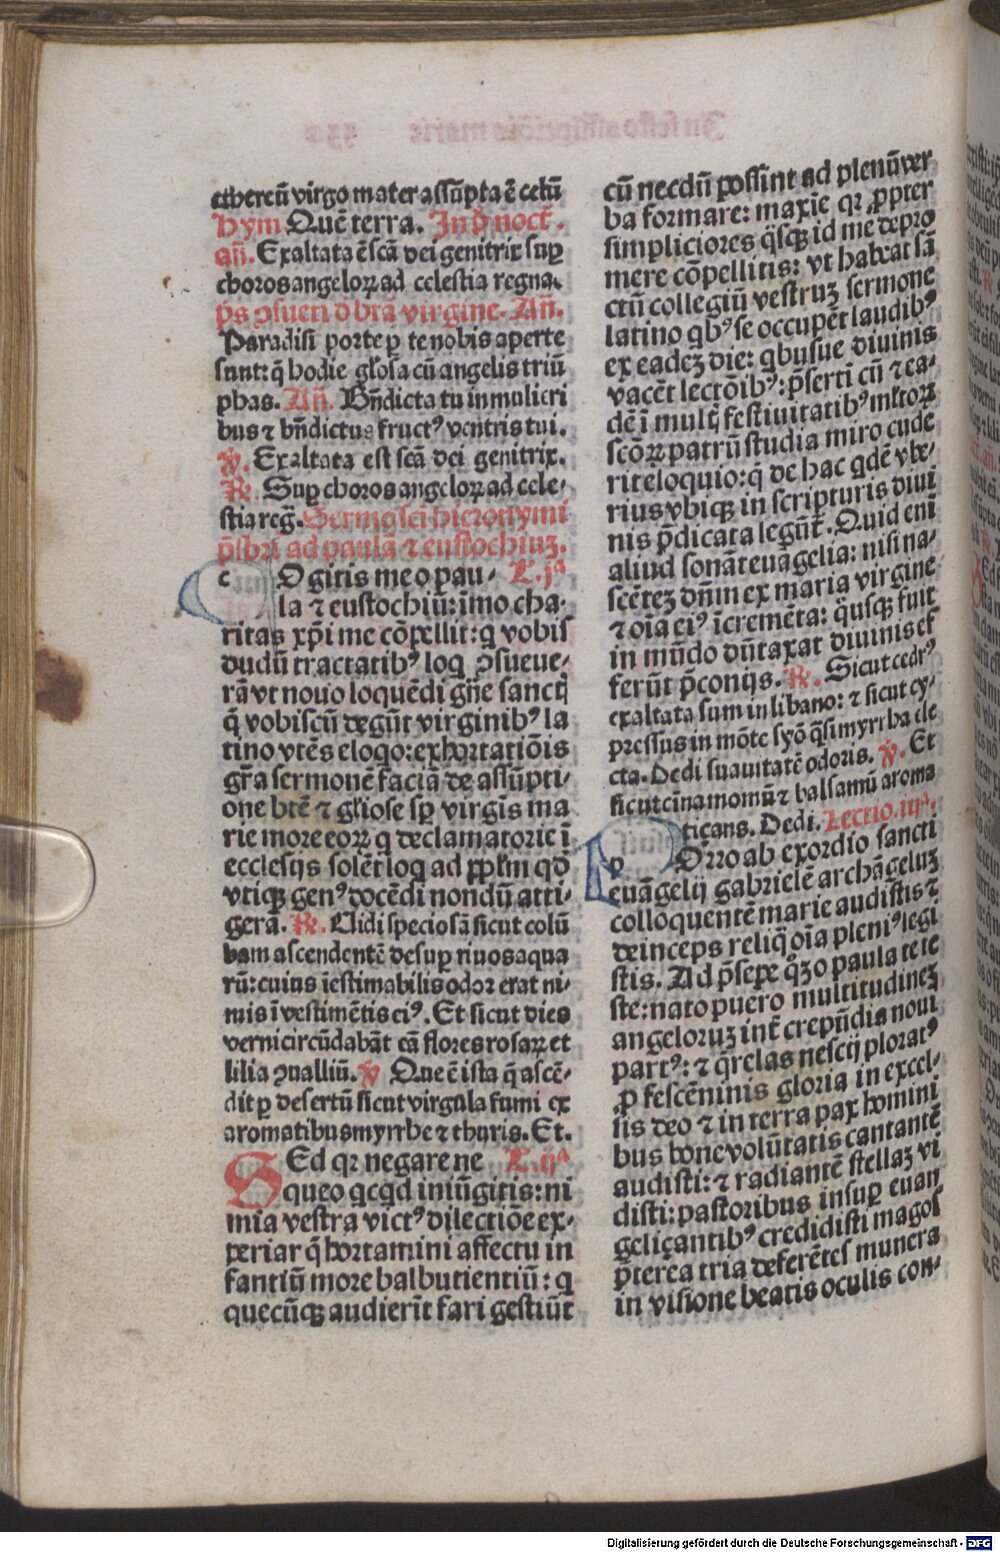 ethereū virgo mater assūpta ē celū
hym Quē terra. In p̄ noct̄.
añ. Exaltata ē scā dei genitrix sup
choros angeloꝝ ad celestia regna.
p̄s ꝯsueti d̄ btā virgine. Añ.
Paradisi porte ꝑ te nobis aperte
sunt: q̄ hodie gl̄osa cū angelis triū
phas. Añ. Bn̄dicta tu in mulieri
bus ⁊ bn̄dictus fructꝰ ventris tui.
℣. Exaltata est scā dei genitrix.
℟. Sup choros angeloꝝ ad cele-
stia reḡ. Sermo sci hieronymi
p̄sbri ad paulā ⁊ eustochiuꝫ.
c Ogitis me o pau- L. jᵃ
la ⁊ eustochiū: īmo cha-
ritas xp̄i me cōpellit: q vobis
dudū tractatibꝰ loq ꝯsueue-
rā vt nouo loquēdi gn̄e sanctꝭ
q̄ vobiscū degūt virginibꝰ la
tino vtēs eloqo: exhortatiōis
gr̄a sermonē faciā de assūpti-
one btē ⁊ gl̄iose sp̄ virgīs ma
rie more eoꝝ q declamatorie ī
ecclesijs solēt loq ad pp̄lm qd̄
vtiqꝫ genꝰ docēdi nondū atti-
gerā. ℟. Uidi speciosā sicut colū
bam ascendentē desup riuos aqua
rū: cuius īestimabilis odor erat ni-
mis ī vestimētis eiꝰ. Et sicut dies
verni circūdabāt eā flores rosaꝝ et
lilia ꝯualliū. ℣ Que ē ista q̄ ascē-
dit ꝑ desertū sicut virgula fumi ex
aromatibus myrrhe ⁊ thuris. Et.
SEd qꝛ negare ne L. ijᵃ
queo qcqd iniūgitis: ni
mia vestra victꝰ dilectiōe ex-
periar q̄ hortamini affectu in
fantiū more balbutientiū: q
quecūqꝫ audierīt fari gestiūt
cū necdū possint ad plenū ver
ba formare: maxīe qꝛ ꝓpter
simpliciores q̄sqꝫ id me depro
mere cōpellitis: vt habeat sā
ctū collegiū vestruꝫ sermone
latino qbꝰ se occupēt laudibꝰ
ex eadeꝫ die: qbusue diuinis
vacēt lectōibꝰ: p̄sertī cū ⁊ ea-
dē ī multꝭ festiuitatibꝰ mltoꝝ
scōꝝ patrū studia miro cude
rīt eloquio: q̄ de hac qdē vbe-
rius vbiqꝫ in scripturis diui
nis p̄dicata legūt̄. Quid enī
aliud sonāt euāgelia: nisi na-
scēteꝫ dn̄m ex maria virgine
⁊ oīa eiꝰ īcremēta: q̄usqꝫ fuit
in mūdo dūtaxat diuinis ef
ferūt p̄conijs. ℟. Sicut cedrꝰ
exaltata sum in libano: ⁊ sicut cy-
pressus in mōte syō q̄si myrrha ele
cta. Dedi suauitatē odoris. ℣. Et
sicut cīnamomū ⁊ balsamū aroma
tiçans. Dedi. Lectio. iijᵃ.
p Orro ab exordio sancti
euāgelij gabrielē archāgeluꝫ
colloquentē marie audistis ⁊
deinceps reliq̄ oīa pleniꝰ legi
stis. Ad p̄sepe q̄ꝫo paula te te
ste: nato puero multitudineꝫ
angeloruꝫ int̄ crepūdia noui
partꝰ: ⁊ q̄relas nescij ploratꝰ
ꝓ fescēninis gloria in excel-
sis deo ⁊ in terra pax homini
bus bone volūtatis cantantē
audisti: ⁊ radiantē stellaꝫ vi
disti: pastoribus insup euan
geliçantibꝰ credidisti magos
p̄terea tria deferētes munera
in visione beatis oculis con-
Digitalisierung gefördert durch die Deutsche Forschungsgemeinschaft - DFG